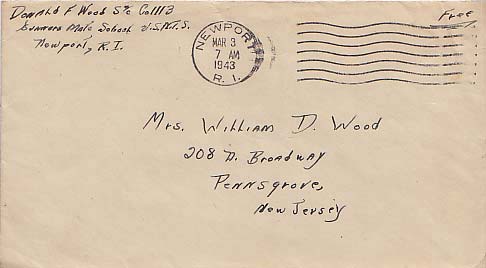 Donald F Wood S 2/c Co 1113
Gunners Mate School U.S.N.T.S.
Newport, R.I.
NEWPORT
MAR 3
7 AM
1943
R. I.
Free
Mrs. William D. Wood
208 N. Broadway
Pennsgrove,
New Jersey